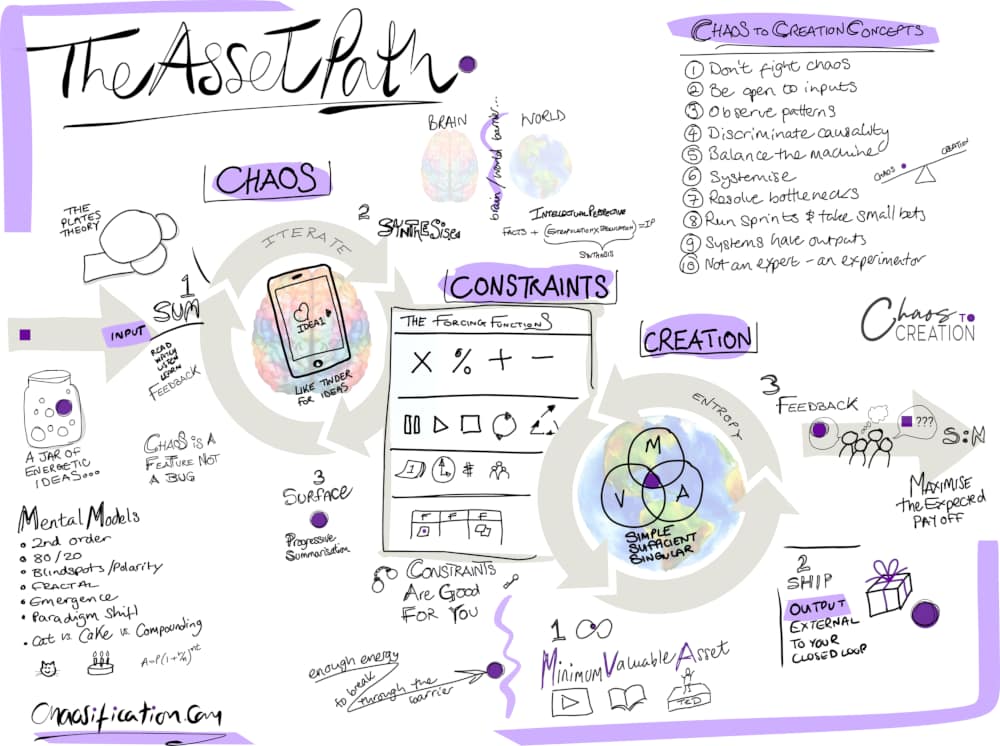 The Asset Path
CHAOS TO CREATION CONCEPTS
1 Don't fight chaos
2 Be open to inputs
3 Observe patterns
4 Discriminate causality
5 Balance the machine
6 Systemise
7 Resolve bottlenecks
8 Run sprints & take small bets
9 Systems have outputs
10 Not an expert - an experimentor
CHAOS
CREATION
BRAIN
WORLD
brain/world barrier...
INTELLECTUAL PERSPECTIVE
FACTS + (EXTRAPOLATION X
) = IP
SYNTHESIS
CHAOS
THE
PLATES
THEORY
ITERATE
2
SYNTHESise
1
SUM
INPUT
READ
WATCH
LISTEN
LEARN
FEEDBACK
IDEA1
LIKE TINDER
FOR IDEAS
A JAR OF
ENERGETIC
IDEAS...
CHAOS IS A
FEATURE NOT
A BUG
3
SURFACE
Progressive
Summarisation
Mental Models
2nd order
80/20
Blindspots/Polarity
FRACTAL
Emergence
Paradigm Shift
Cat vs Cake vs Compounding
A=P(1+r/n)^nt
Chaosification.com
CONSTRAINTS
THE FORCING FUNCTIONS
X % + -
1 #
F F F
CONSTRAINTS
ARE GOOD
FOR YOU
enough energy
to break
through the
barrier
CREATION
ENTROPY
M
V A
SIMPLE
SUFFICIENT
SINGULAR
1
Minimum Valuable Asset
TED
Chaos TO
CREATION
3
FEEDBACK
???
S:N
MAXIMISE
the Expected
PAY OFF
2
SHIP
OUTPUT
EXTERNAL
TO YOUR
CLOSED LOOP